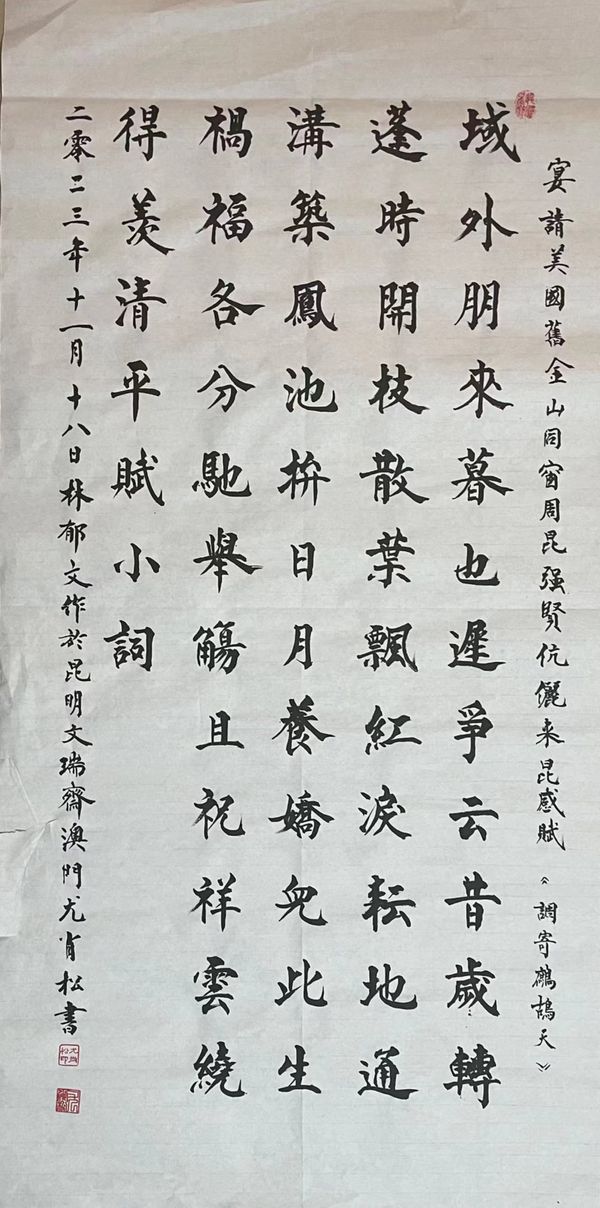 宴請美國舊金山同窗周昆强賢伉儷来昆感賦《調寄鷓鴣天》
域外朋來暮也遲爭云昔歲轉
蓬時開枝散葉飄紅淚耘地通
溝築鳳池拚日月養嬌兒此生
禍福各分馳舉觴且祝祥雲繞
得羨清平賦小詞
二零二三年十一月十八日林郁文作於昆明文瑞齋澳門尤肖松書